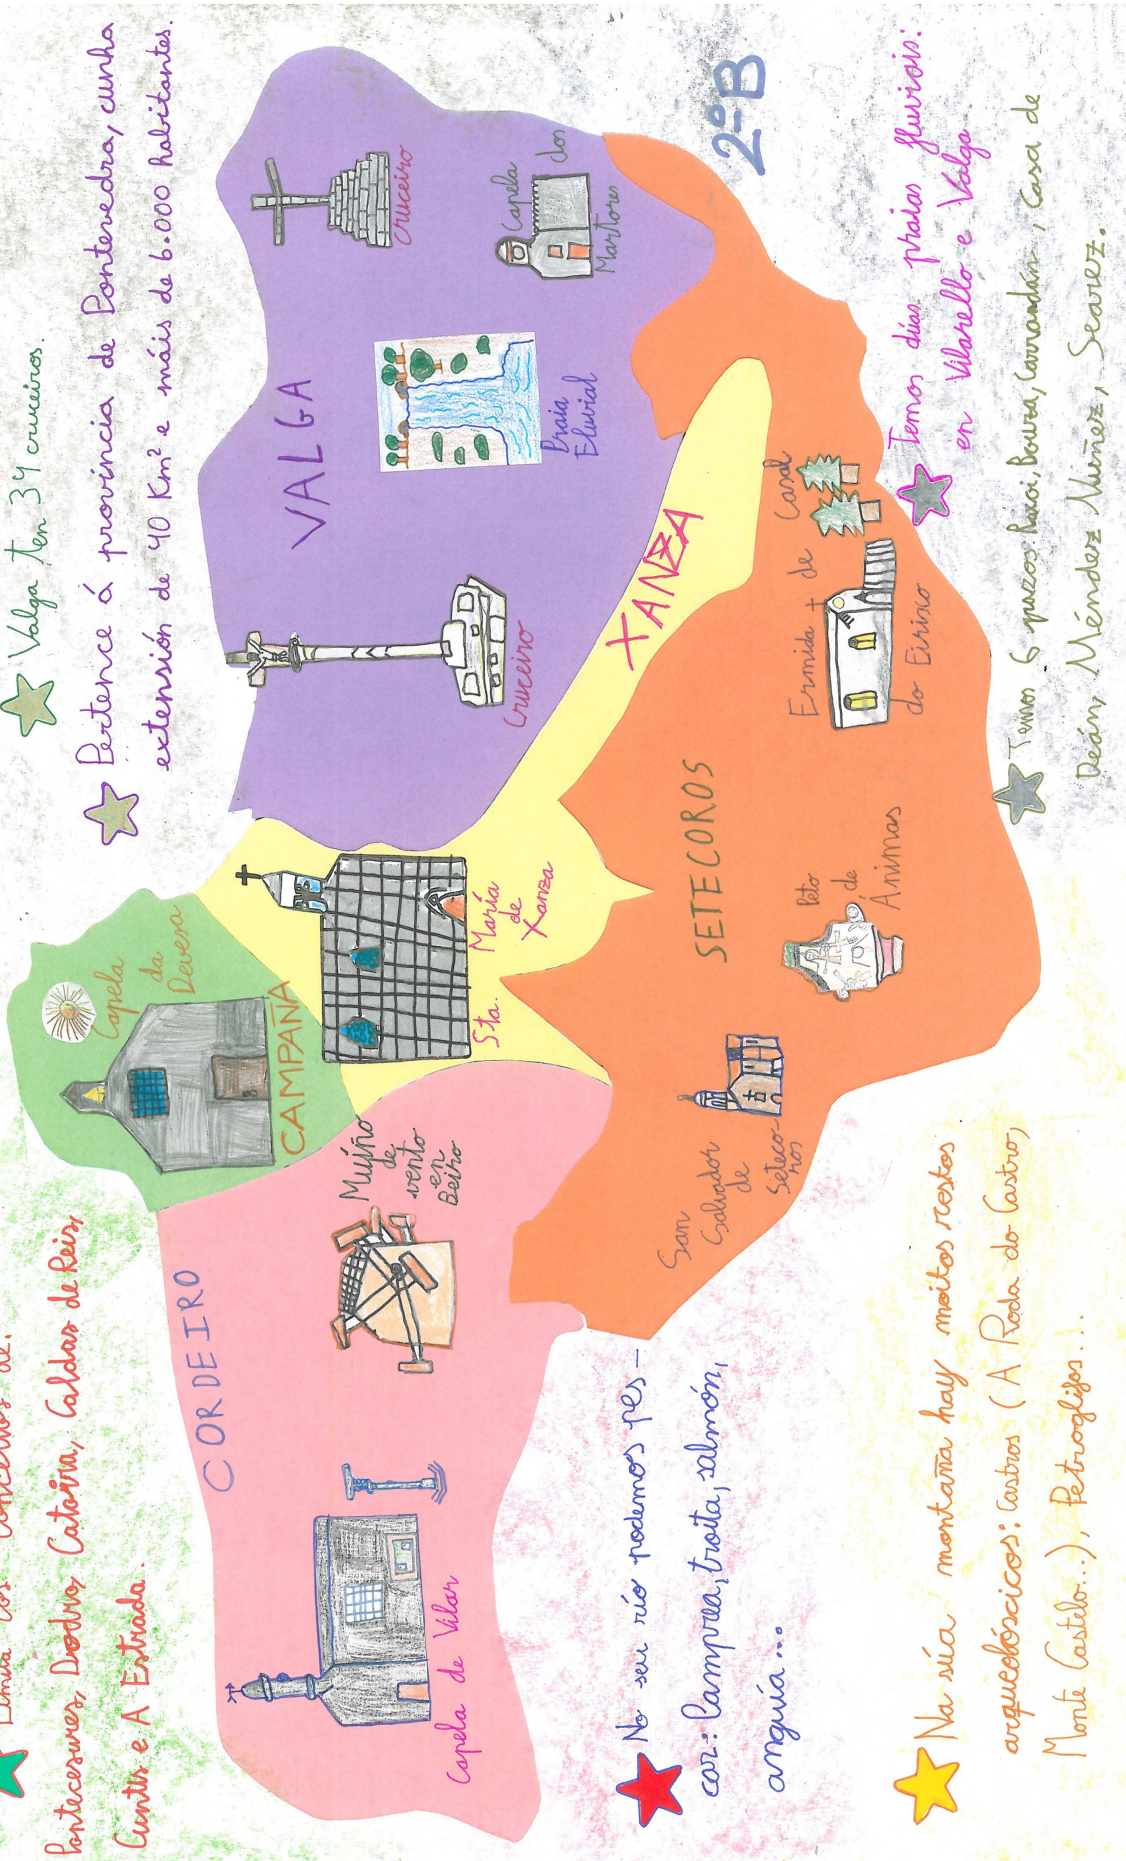 Limita cos concellos de:
Pontecesures, Dodro, Catoira, Caldas de Reis,
Cuntis e A Estrada.
Valga ten 34 cruceiros.
Pertence á provincia de Pontevedra, cunha
extensión de 40 Km² e máis de 6.000 habitantes.
CORDEIRO
Capela de Vilar
Muíño
de
vento
en
Beiro
Capela
da
Devesa
CAMPAÑA
Sta. María
de
Xanza
VALGA
Cruceiro
Praia
Fluvial
Cruceiro
Capela dos
Martores
XANZA
SETECOROS
San
Salvador
de
Seteco-
ros
Peto
de
Ánimas
Ermida + de Casal
do Eirixo
2º B
No seu río podemos pes-
car: lamprea, troita, salmón,
anguía...
Na súa montaña hay moitos restos
arqueolóscicos: Castros (A Roda do Castro,
Monte Castelo...), Petroglifos...
Temos dúas praias fluviais:
en Vilarello e Valga
Temos 6 pazos: Raxoi, Boura, Carrandán, Casa de
Deán, Méndez Núñez, Searez.